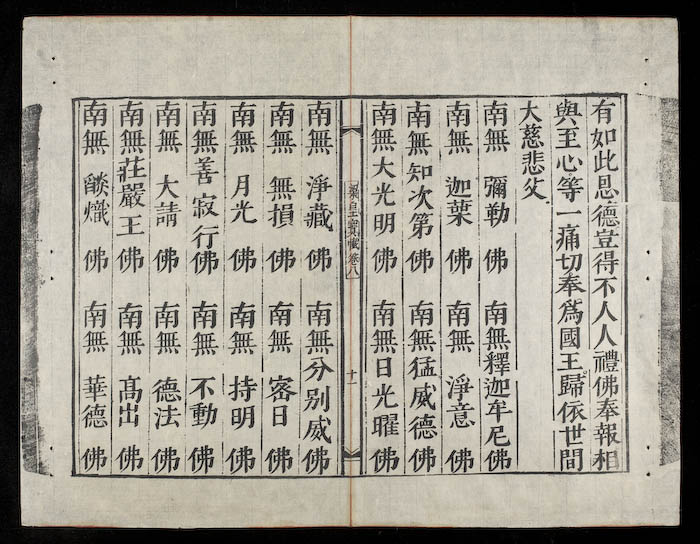 有如此恩德豈得不人人禮佛奉報相
與至心等一痛切奉爲國王歸依世間
大慈悲父
南無 彌勒 佛 南無釋迦牟尼佛
南無 迦葉 佛 南無 淨意 佛
南無知次第佛 南無猛威德佛
南無大光明佛 南無日光曜佛
梁皇寶懺卷八 十一
南無 淨藏 佛 南無分别威佛
南無 無損 佛 南無 密日 佛
南無 月光 佛 南無 持明 佛
南無善寂行佛 南無 不動 佛
南無 大請 佛 南無 德法 佛
南無莊嚴王佛 南無 髙出 佛
南無 燄熾 佛 南無 華德 佛